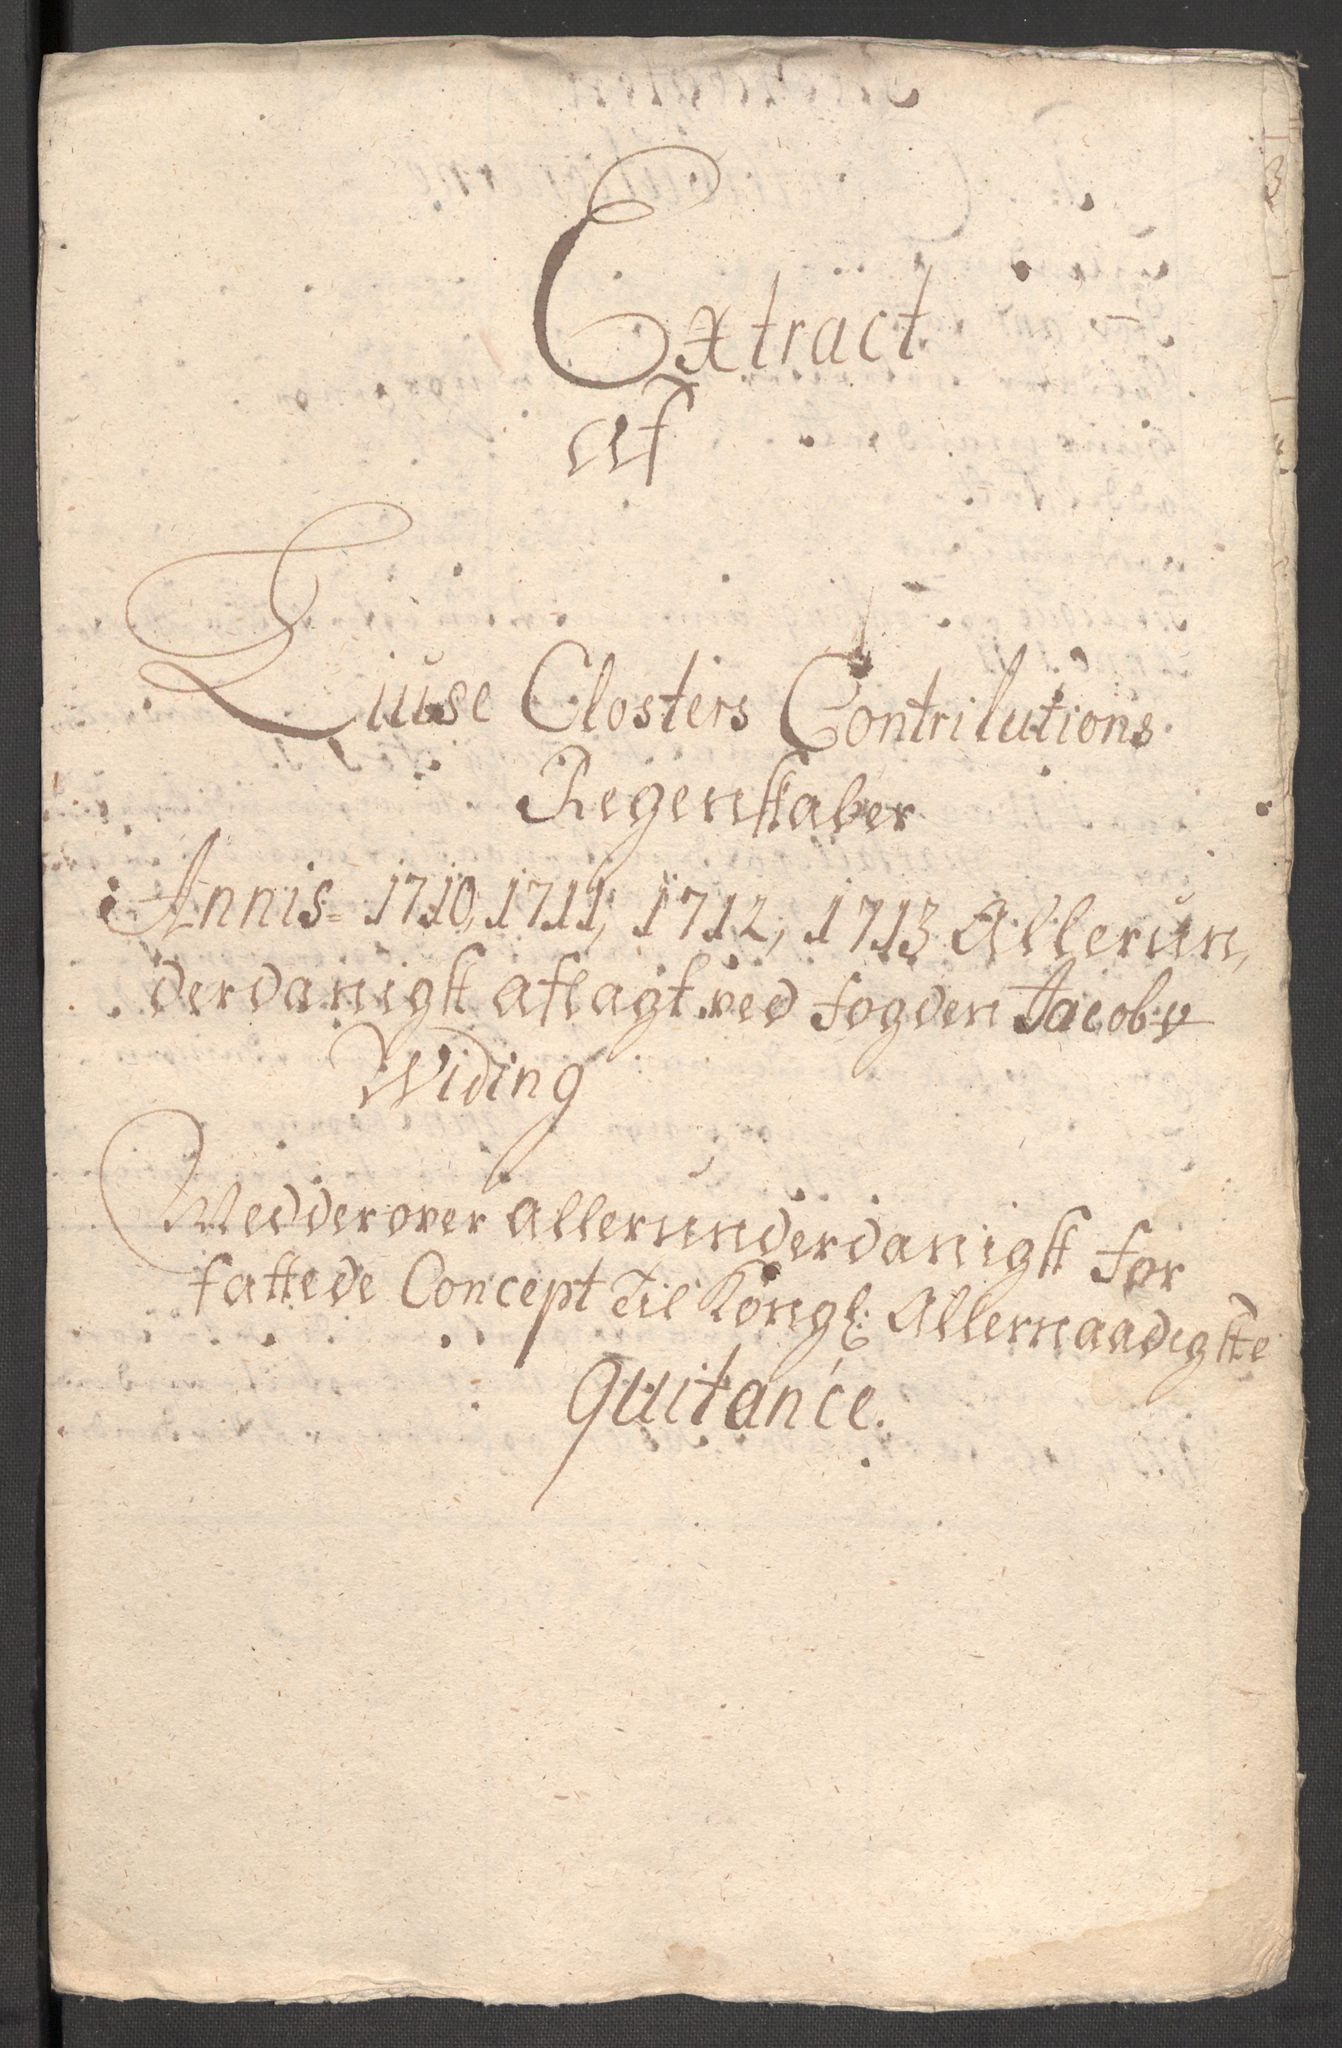 Extract
af
Liuse Closters Contributions
Regenskaber
Annis= 1710, 1711, 1712, 1713 Allerun,
derdanigst aflagt ved fogden Jacob v
Widing
Med derover allerunderdanigst for
fattede Concept Til Kongl: Allernaadigste
quitance.